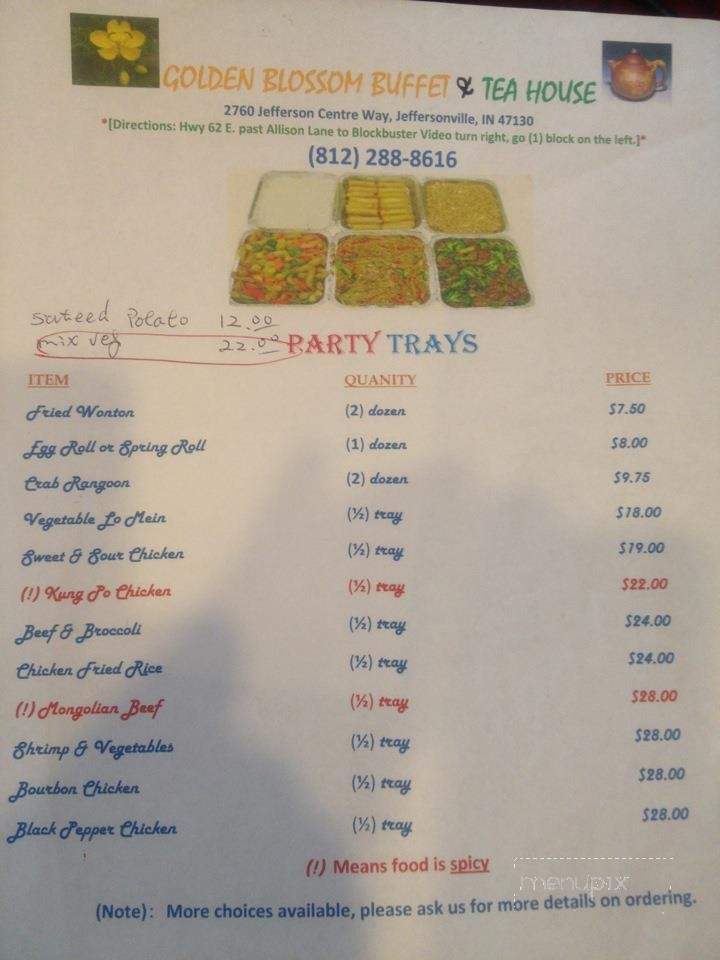 GOLDEN BLOSSOM BUFFET & TEA HOUSE
2760 Jefferson Centre Way, Jeffersonville, IN 47130
*[Directions: Hwy 62 E. past Allison Lane to Blockbuster Video turn right, go (1) block on the left.]*
(812) 288-8616
Sauteed Potato 12.00
mix veg 22.00
PARTY TRAYS
ITEM QUANITY PRICE
Fried Wonton (2) dozen $7.50
Egg Roll or Spring Roll (1) dozen $8.00
Crab Rangoon (2) dozen $9.75
Vegetable Lo Mein (½) tray $18.00
Sweet & Sour Chicken (½) tray $19.00
(!) Kung Po Chicken (½) tray $22.00
Beef & Broccoli (½) tray $24.00
Chicken Fried Rice (½) tray $24.00
(!) Mongolian Beef (½) tray $28.00
Shrimp & Vegetables (½) tray $28.00
Bourbon Chicken (½) tray $28.00
Black Pepper Chicken (½) tray $28.00
(!) Means food is spicy
menupix
(Note): More choices available, please ask us for more details on ordering.